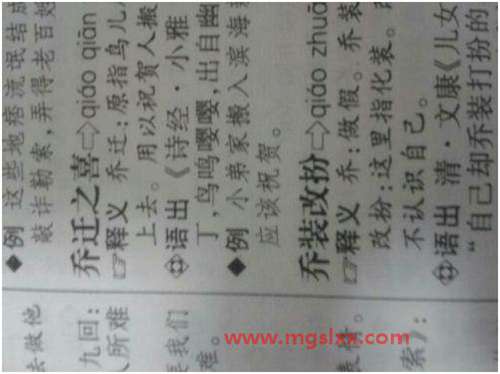 去做他
九回：
人所难
我们
难。
情。
索》：
◆例 这些地痞流氓结成
敲诈勒索，弄得老百姓
乔迁之喜⇨qiáo qiān
☞释义 乔迁：原指鸟儿
上去。用以祝贺人搬
语出 《诗经·小雅
丁，鸟鸣嘤嘤，出自幽
◆例 小弟家搬入滨海
应该祝贺。
乔装改扮⇨qiáo zhuā
☞释义 乔：做假。乔装
改扮：这里指化装。
不认识自己。
语出 清·文康《儿女
“自己却乔装打扮的
www.mgslxx.com